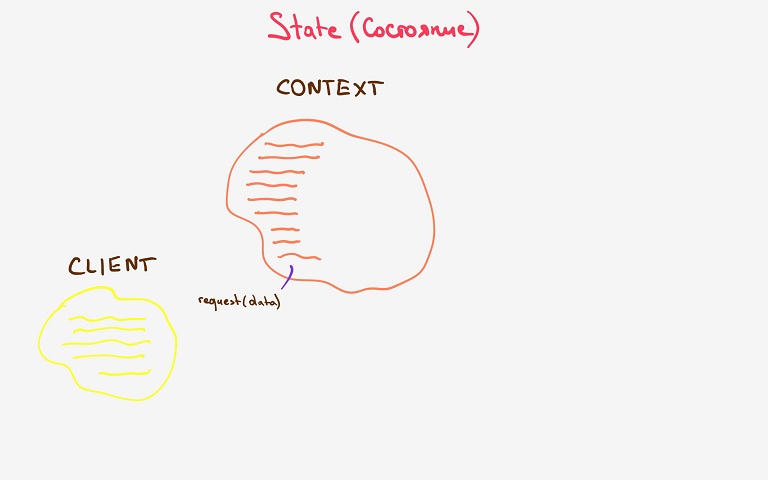 State (Состояние)
CONTEXT
CLIENT
request(data)